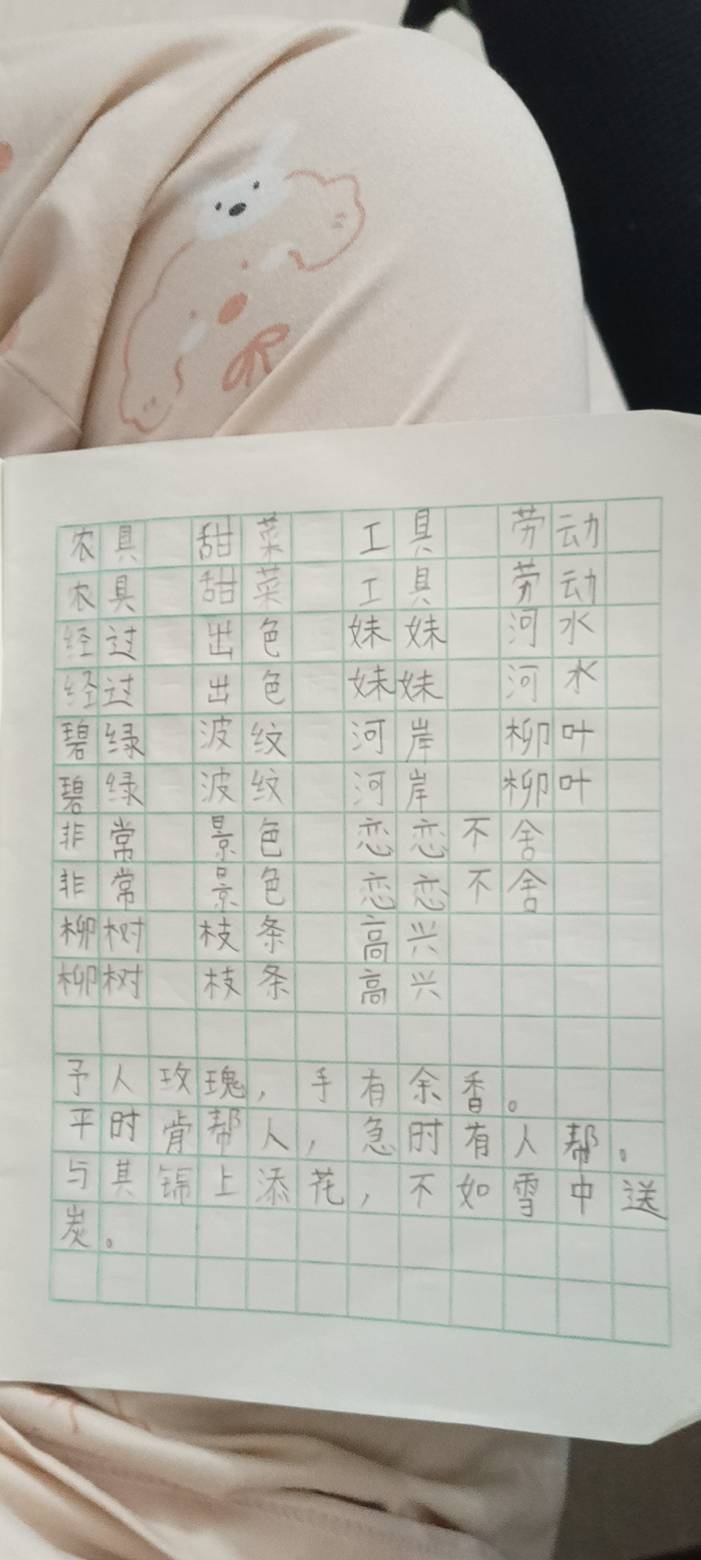 农具 甜菜 工具 劳动
农具 甜菜 工具 劳动
经过 出色 妹妹 河水
经过 出色 妹妹 河水
碧绿 波纹 河岸 柳叶
碧绿 波纹 河岸 柳叶
非常 景色 恋恋不舍
非常 景色 恋恋不舍
柳树 枝条 高兴
柳树 枝条 高兴
予人玫瑰,手有余香。
平时肯帮人,急时有人帮。
与其锦上添花,不如雪中送
炭。